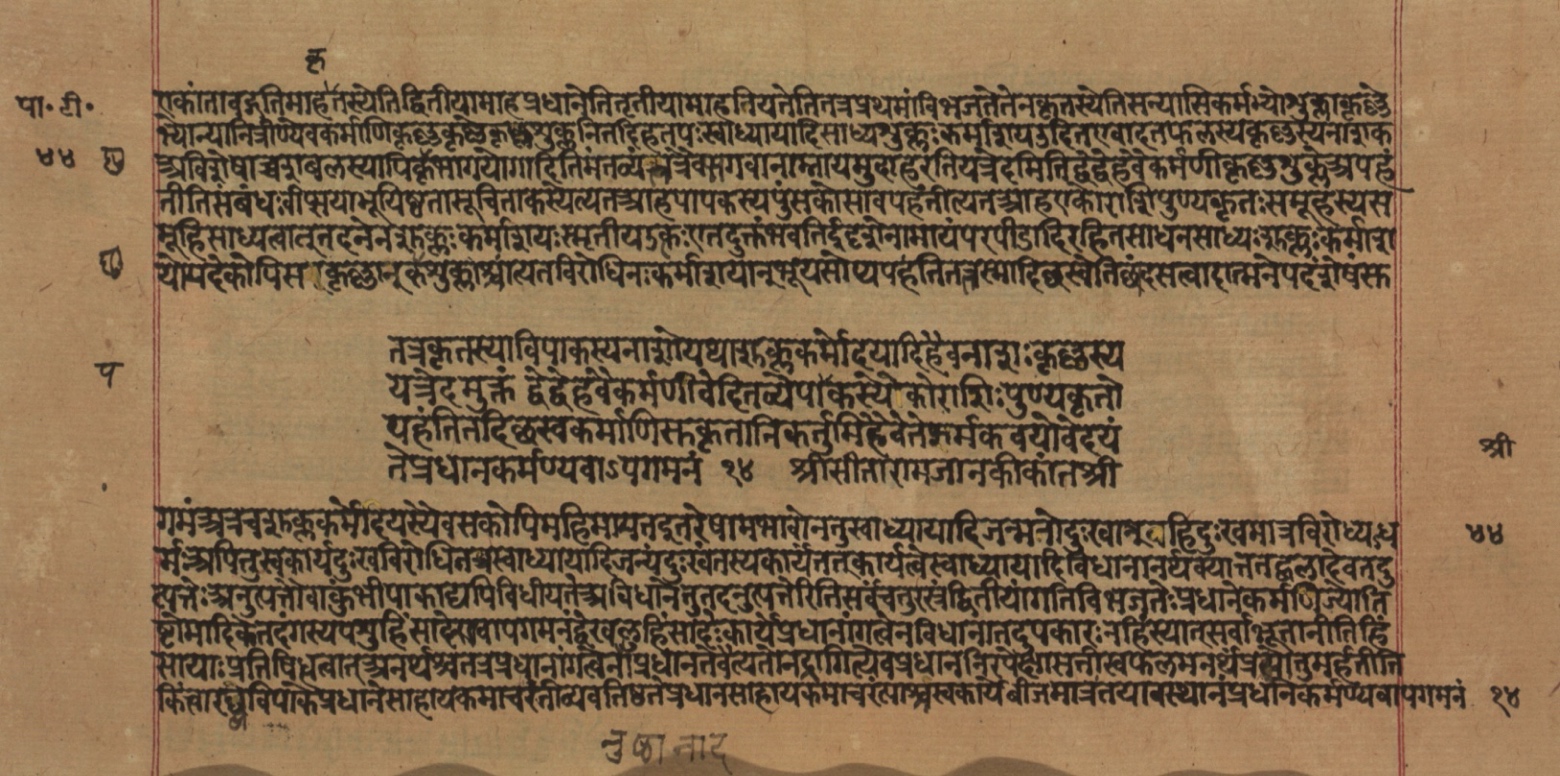 कृ
पा॰ टी॰
एकांतावद्गतिमाहतस्येतिद्वितीयामाहप्रधानेतितृतीयामाहनियतेतितत्रप्रथमांविभजतेतेनकृतस्येतिसन्यासिकर्मभ्योशुक्लाकृष्णे
भ्यान्यानित्रीण्येवकर्माणिकृष्णकृष्णशुक्लशुक्लानितदिहतपःस्वाध्यायादिसाध्यशुक्लःकर्माशयउदितएवादत्तफलस्यकृष्णस्यनाशक
४४
अविशेषाच्चशबलस्यापिकृष्णभागयोगादितिमंतव्यंतत्रैवभगवानाम्नायमुदाहरतियत्रेदमितिद्वेद्वेहवैकर्मणीकृष्णशुक्लेअपहं
नीतिसंबंधःवीप्सयाभूयिष्ठतासूचिताकस्येत्यतआहपापकस्यपुंसःकोसावपहंतीत्यतआहएकोराशिपुण्यकृतःसमूहस्यस
मूहिसाध्यत्वात्तदनेनशुक्लःकर्माशयःस्मृतीयउक्तःएतदुक्तंभवतिईदृशोनामायंपरपीडादिरहितसाधनसाध्यःशुक्लःकर्माश
योयदेकोपिसन्कृष्णान्कृष्णशुक्लांश्चात्यंतविरोधिनःकर्माशयान्भूयसोप्यपहंतितत्तस्मादिच्छस्वेतिछांदसत्वादात्मनेपदंशेषंस्त
तत्रकृतस्याविपाकस्यनाशोयथाशुक्लकर्मोदयादिहैवनाशःकृष्णस्य
यत्रेदमुक्तं द्वेद्वेहवैकर्मणीवेदितव्येपापकस्यैकोराशिःपुण्यकृतो
प
पहंतितदिच्छस्वकर्माणिसुकृतानिकर्तुमिहैवतेकर्मकवयोवेदयं
तेप्रधानकर्मण्यवाऽपगमनं १४ श्रीसीतारामजानकीकांतश्री
श्री
गमंअत्रचशुक्लकर्मोदयस्यैवसकोपिमहिमायतइतरेषामभावोननुस्वाध्यायादिजन्मनोदुःखान्नहिदुःखमात्रविरोध्यध
४४
र्मःअपितुस्वकार्यदुःखविरोधितचस्वाध्यायादिजन्यंदुःखंतस्यकार्यंतत्कार्यत्वेस्वाध्यायादिविधानानर्थक्यात्तद्बलादेवतदु
त्पत्तेःअनुत्पत्तौवाकुंभीपाकाद्यपिविधीयतेअविधानेतुतदनुत्पत्तेरितिसर्वंचतुरस्रंद्वितीयांगतिविभजतेःप्रधानेकर्मणिज्योति
ष्टोमादिकेतदंगस्यपशुहिंसादेरावापगमनंद्वेखलुहिंसादेःकार्येप्रधानांगत्वेनविधानात्तदुपकारःनहिंस्यात्सर्वाभूतानीतिहिं
सायाःप्रतिषिद्धत्वात्अनर्थश्चतत्रप्रधानांगत्वेनाप्रधानतैवेत्यतोनद्रागित्येवप्रधाननिरपेक्षासतीस्वफलमनर्थंप्रसोतुमर्हतीति
किंत्वारब्धविपाकेप्रधानेसाहायकमाचरंतीव्यवतिष्ठतेप्रधानसाहायकमाचरंत्याश्चस्वकार्येबीजमात्रतयावस्थानंप्रधानेकर्मण्यवापगमनं १४